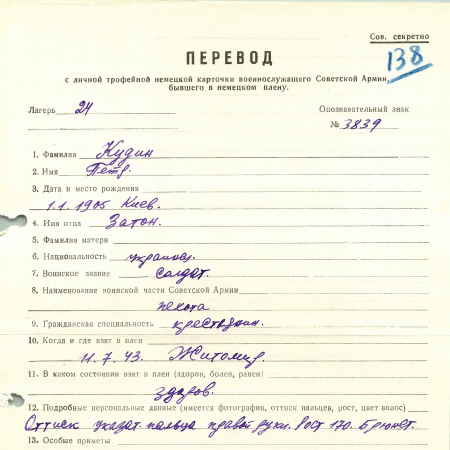 Сов. секретно
138
ПЕРЕВОД
с личной трофейной немецкой карточки военнослужащего Советской Армии,
бывшего в немецком плену.
Лагерь 24 Опознавательный знак
№ 3839
1. Фамилия Кудин
2. Имя Петр.
3. Дата и место рождения
1.1.1905 Киев.
4. Имя отца Затон.
5. Фамилия матери
6. Национальность украинец.
7. Воинское звание солдат.
8. Наименование воинской части Советской Армии
пехота
9. Гражданская специальность крестьянин.
10. Когда и где взят в плен
11.7.43. Житомир.
11. В каком состоянии взят в плен (здоров, болен, ранен)
здоров.
12. Подробные персональные данные (имеется фотография, оттиск пальцев, рост, цвет волос)
Оттиск указат. пальца правой руки. Рост 170. Брюнет.
13. Особые приметы